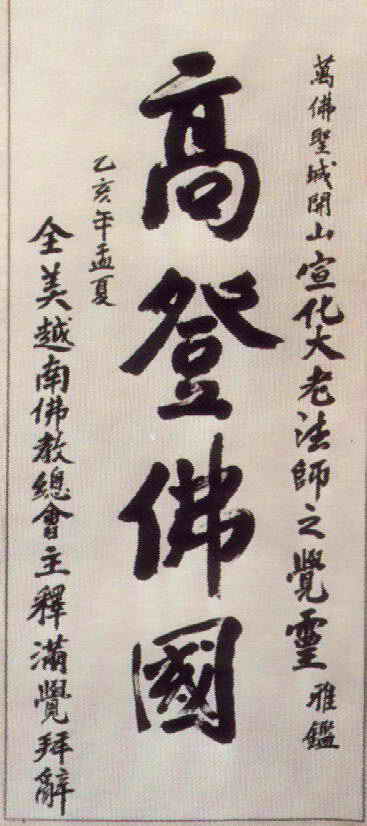 萬佛聖城開山宣化大老法師之覺靈 雅鑑
高登佛國
乙亥年孟夏
全美越南佛教總會主釋滿覺拜辭